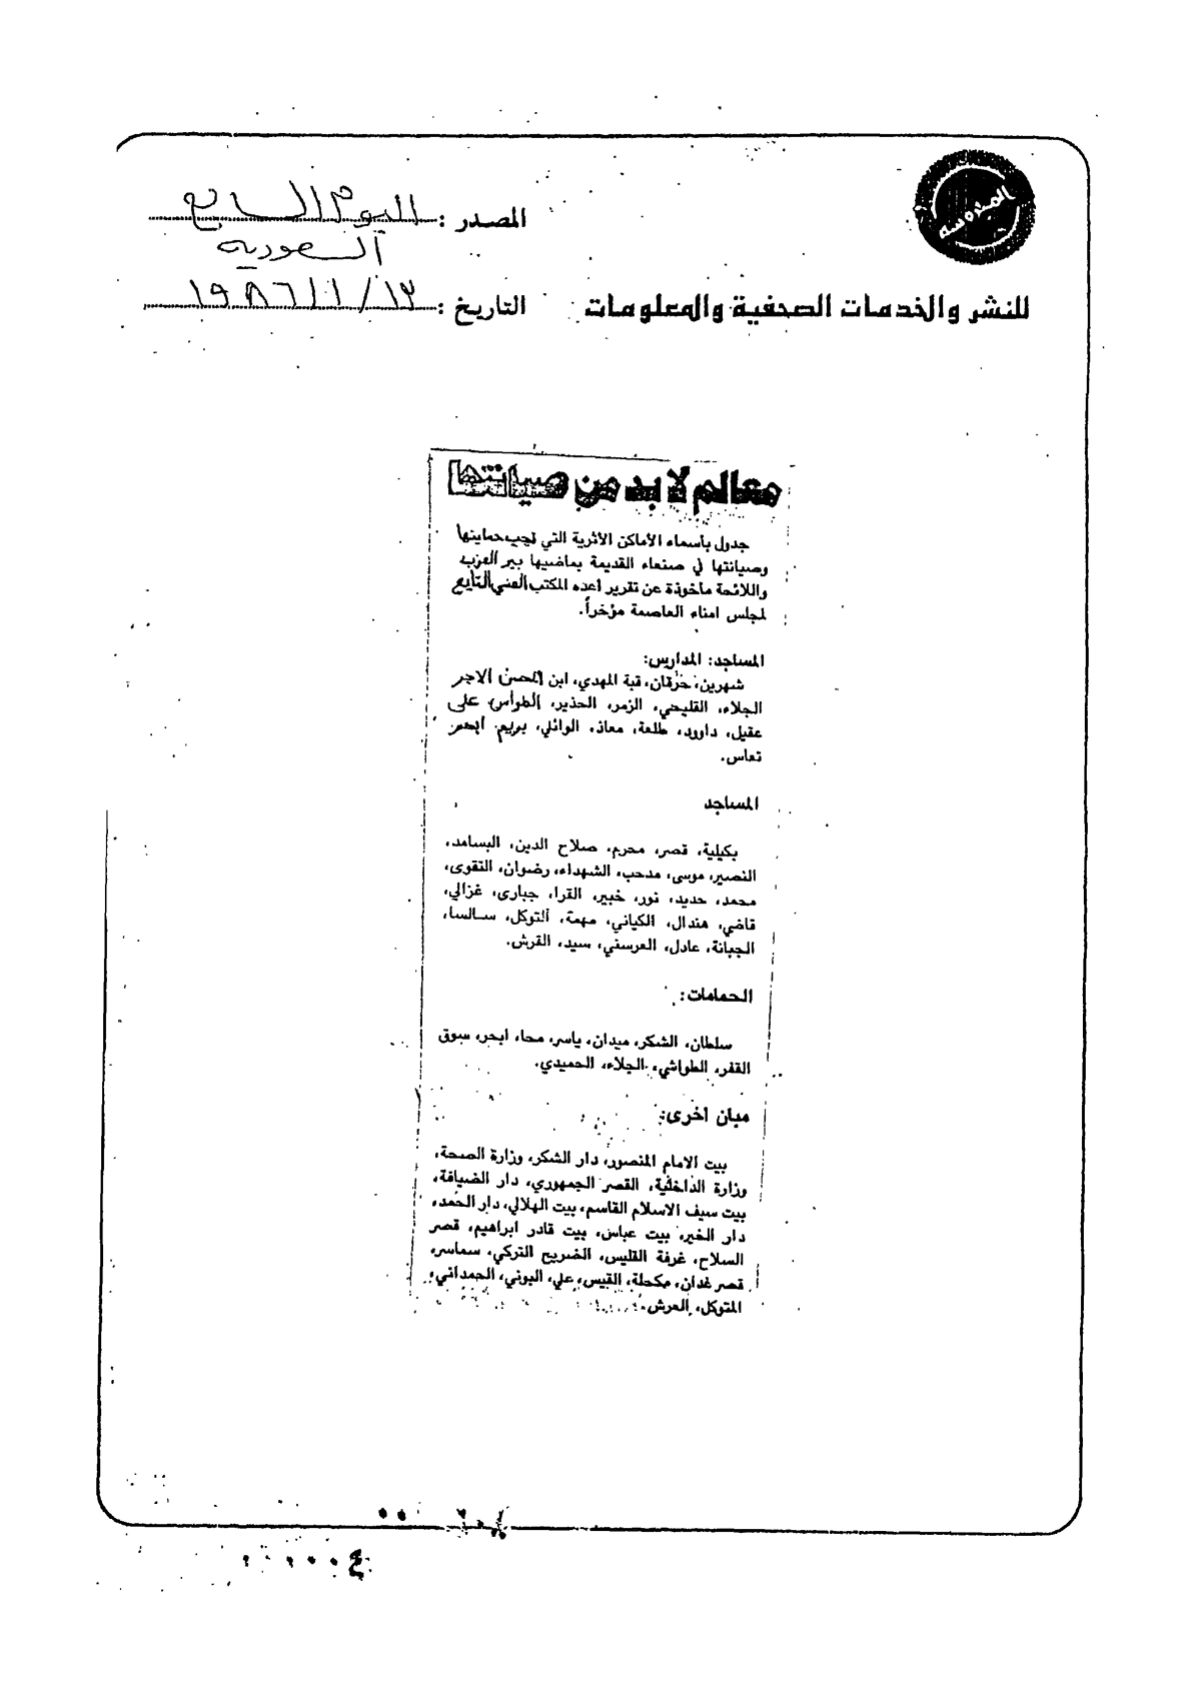 المدروسه
المصدر : اليوم السابع
السعودية
للنشر والخدمات الصحفية والمعلومات
التاريخ : ١٣/١/١٩٨٦
معالم لا بد من صيانتها
جدول بأسماء الأماكن الأثرية التي تجب حمايتها
وصيانتها في صنعاء القديمة بماضيها بير العزب
واللائحة مأخوذة عن تقرير اعده المكتب الفني التابع
لمجلس امناء العاصمة مؤخراً.
المساجد: المدارس:
شهرين، خرقان، قبة المهدي، ابن الحسن الاجر
الجلاء، القليحي، الزمر، الحذير، الطواس على
عقيل، داوود، طلعة، معاذ، الوائلي، بريم
تعاس.
المساجد
بكيلية، قصر، محرم، صلاح الدين، البسامد،
النصير، موسى، مدحب، الشهداء، رضوان، التقوى،
محمد، حديد، نور، خبير، القرا، جبارى، غزالي،
قاضي، هندال، الكياني، مهمة، التوكل، سالسا،
الجبانة، عادل، العرسني، سيد، القرش.
الحمامات:
سلطان، الشكر، ميدان، ياسر، محا، ابحر، سوق
القفر، الطواشي، الجلاء، الحميدي.
مبان اخرى:
بيت الامام المنصور، دار الشكر، وزارة الصحة،
وزارة الداخلية، القصر الجمهوري، دار الضيافة،
بيت سيف الاسلام القاسم، بيت الهلالي، دار الحمد،
دار الخير، بيت عباس، بيت قادر ابراهيم، قصر
السلاح، غرفة القليس، الضريح التركي، سماسر،
قصر غمدان، مكحلة، القيس، علي، البوني، الحمداني،
المتوكل، العرش.